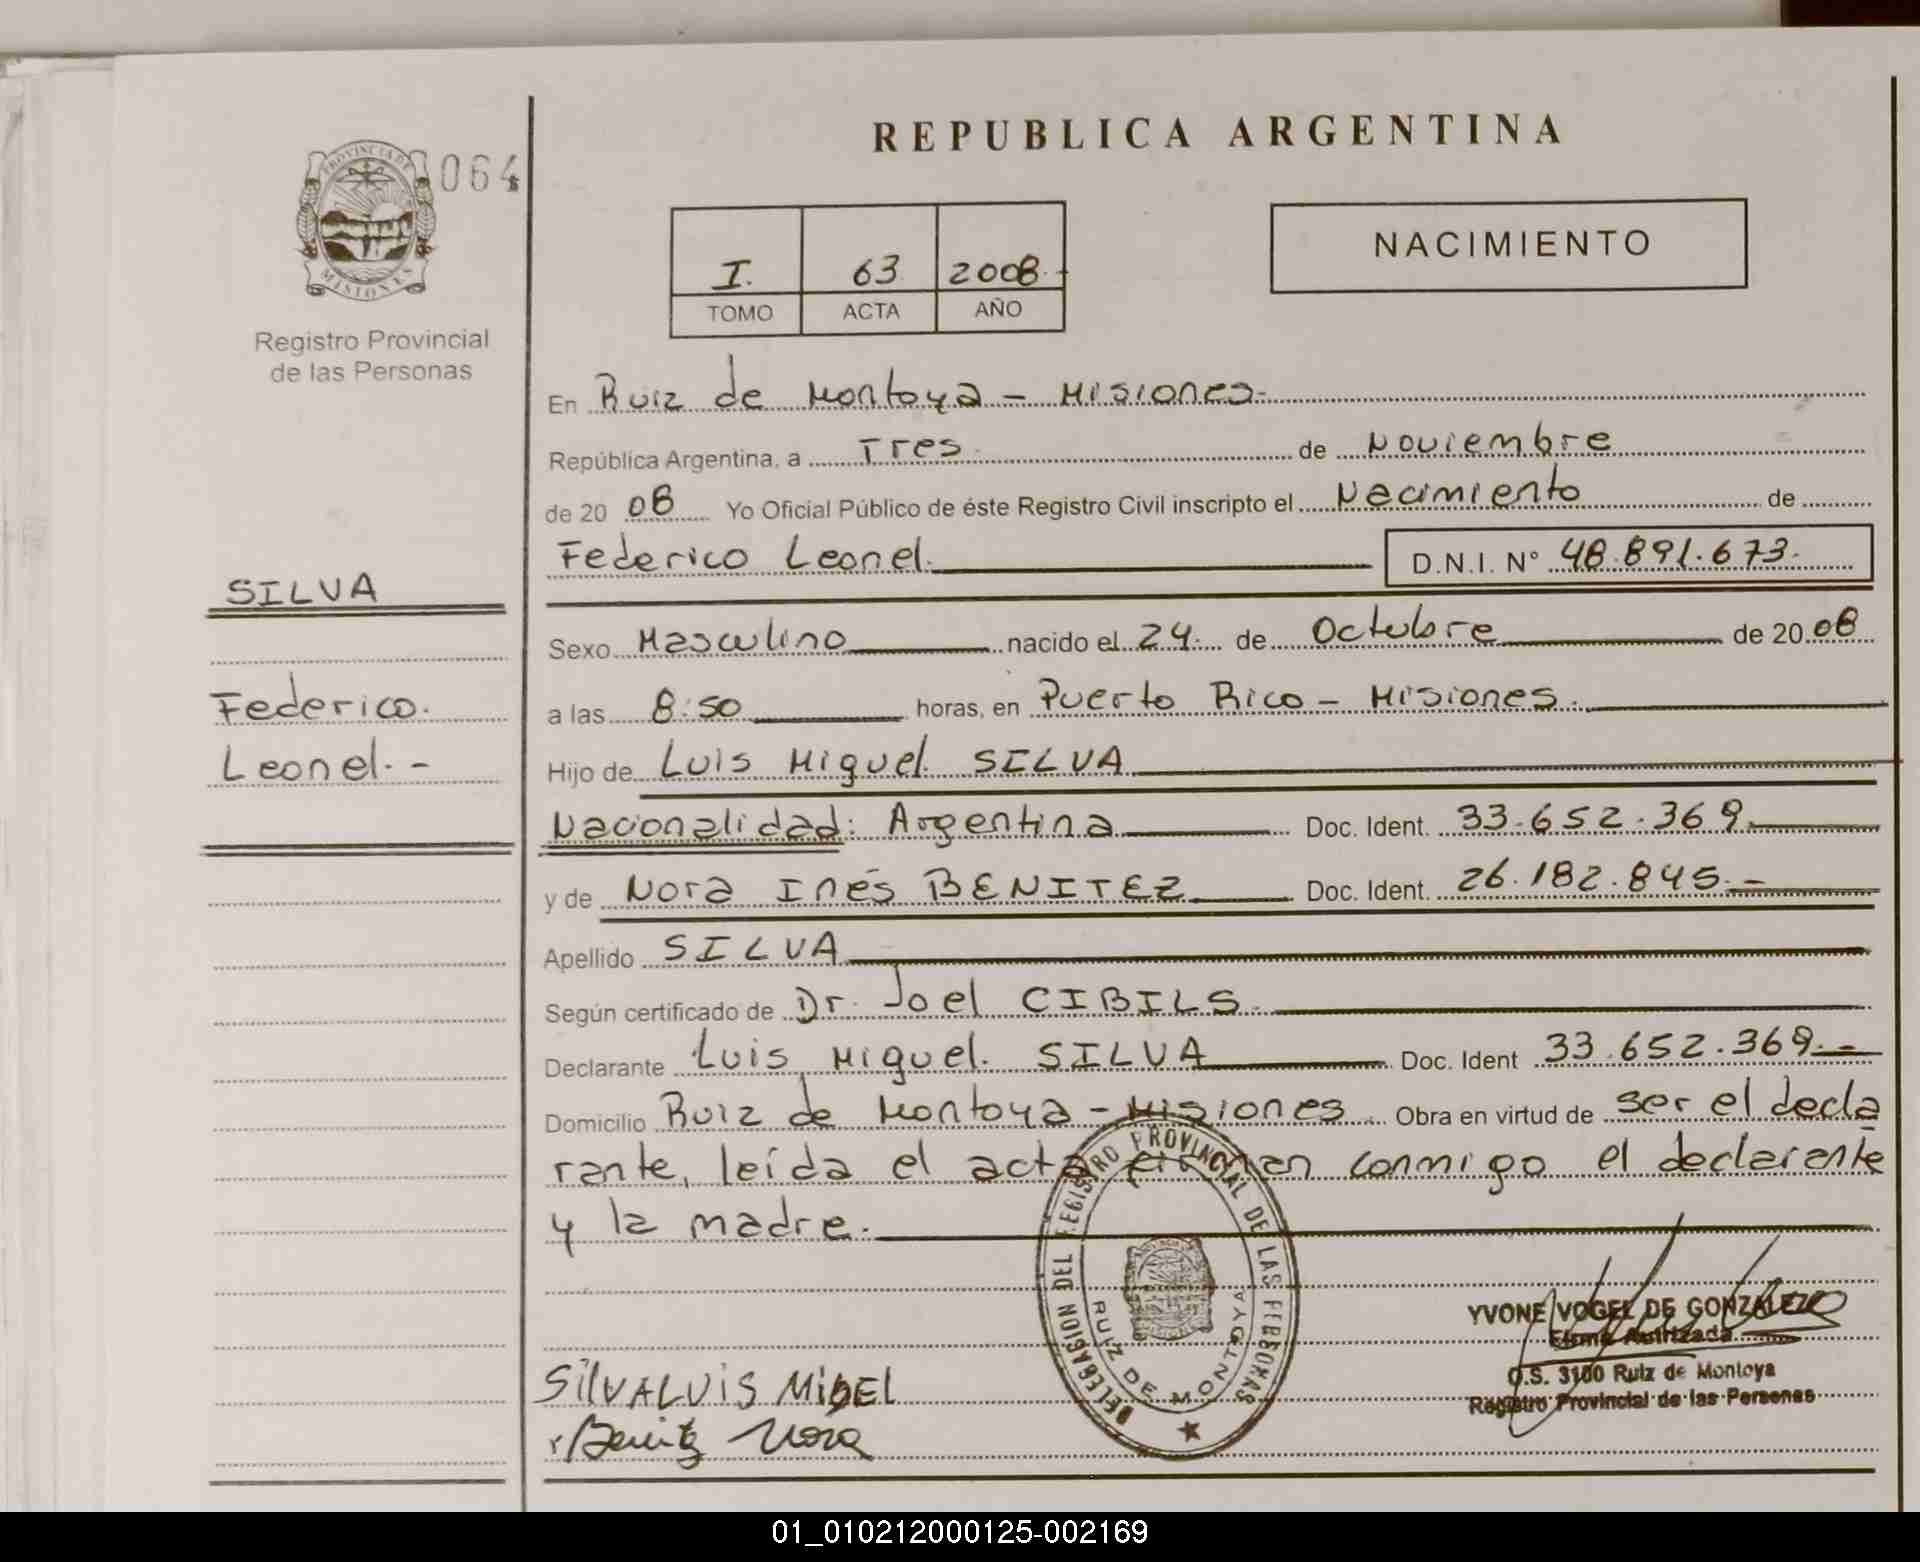 REPUBLICA ARGENTINA
PROVINCIA DE
MISIONES
064
Registro Provincial
de las Personas
I. 63 2008.-
TOMO ACTA AÑO
NACIMIENTO
En Ruiz de Montoya - Misiones.
República Argentina, a Tres. de Noviembre
de 2008 Yo Oficial Público de éste Registro Civil inscripto el Nacimiento de
Federico Leonel. D.N.I. N° 48.891.673.
SILVA
Federico.
Leonel.-
Sexo Masculino nacido el 24. de Octubre de 2008
a las 8:50 horas, en Puerto Rico - Misiones.
Hijo de Luis Miguel SILVA
Nacionalidad: Argentina Doc. Ident. 33.652.369.
y de Nora Inés BENITEZ Doc. Ident. 26.182.845.-
Apellido SILVA
Según certificado de Dr. Joel CIBILS.
Declarante Luis Miguel. SILVA Doc. Ident 33.652.369.-
Domicilio Ruiz de Montoya - Misiones Obra en virtud de ser el decla
rante, leída el acta firman conmigo el declarante
y la madre.
DELEGACION DEL REGISTRO PROVINCIAL DE LAS PERSONAS
RUIZ DE MONTOYA
YVONE VOGEL DE GONZALEZ
Firma Autrizada
O.S. 3100 Ruiz de Montoya
Registro Provincial de las Personas
SilVALUIS MiGEL
Benitez Nora
01_010212000125-002169